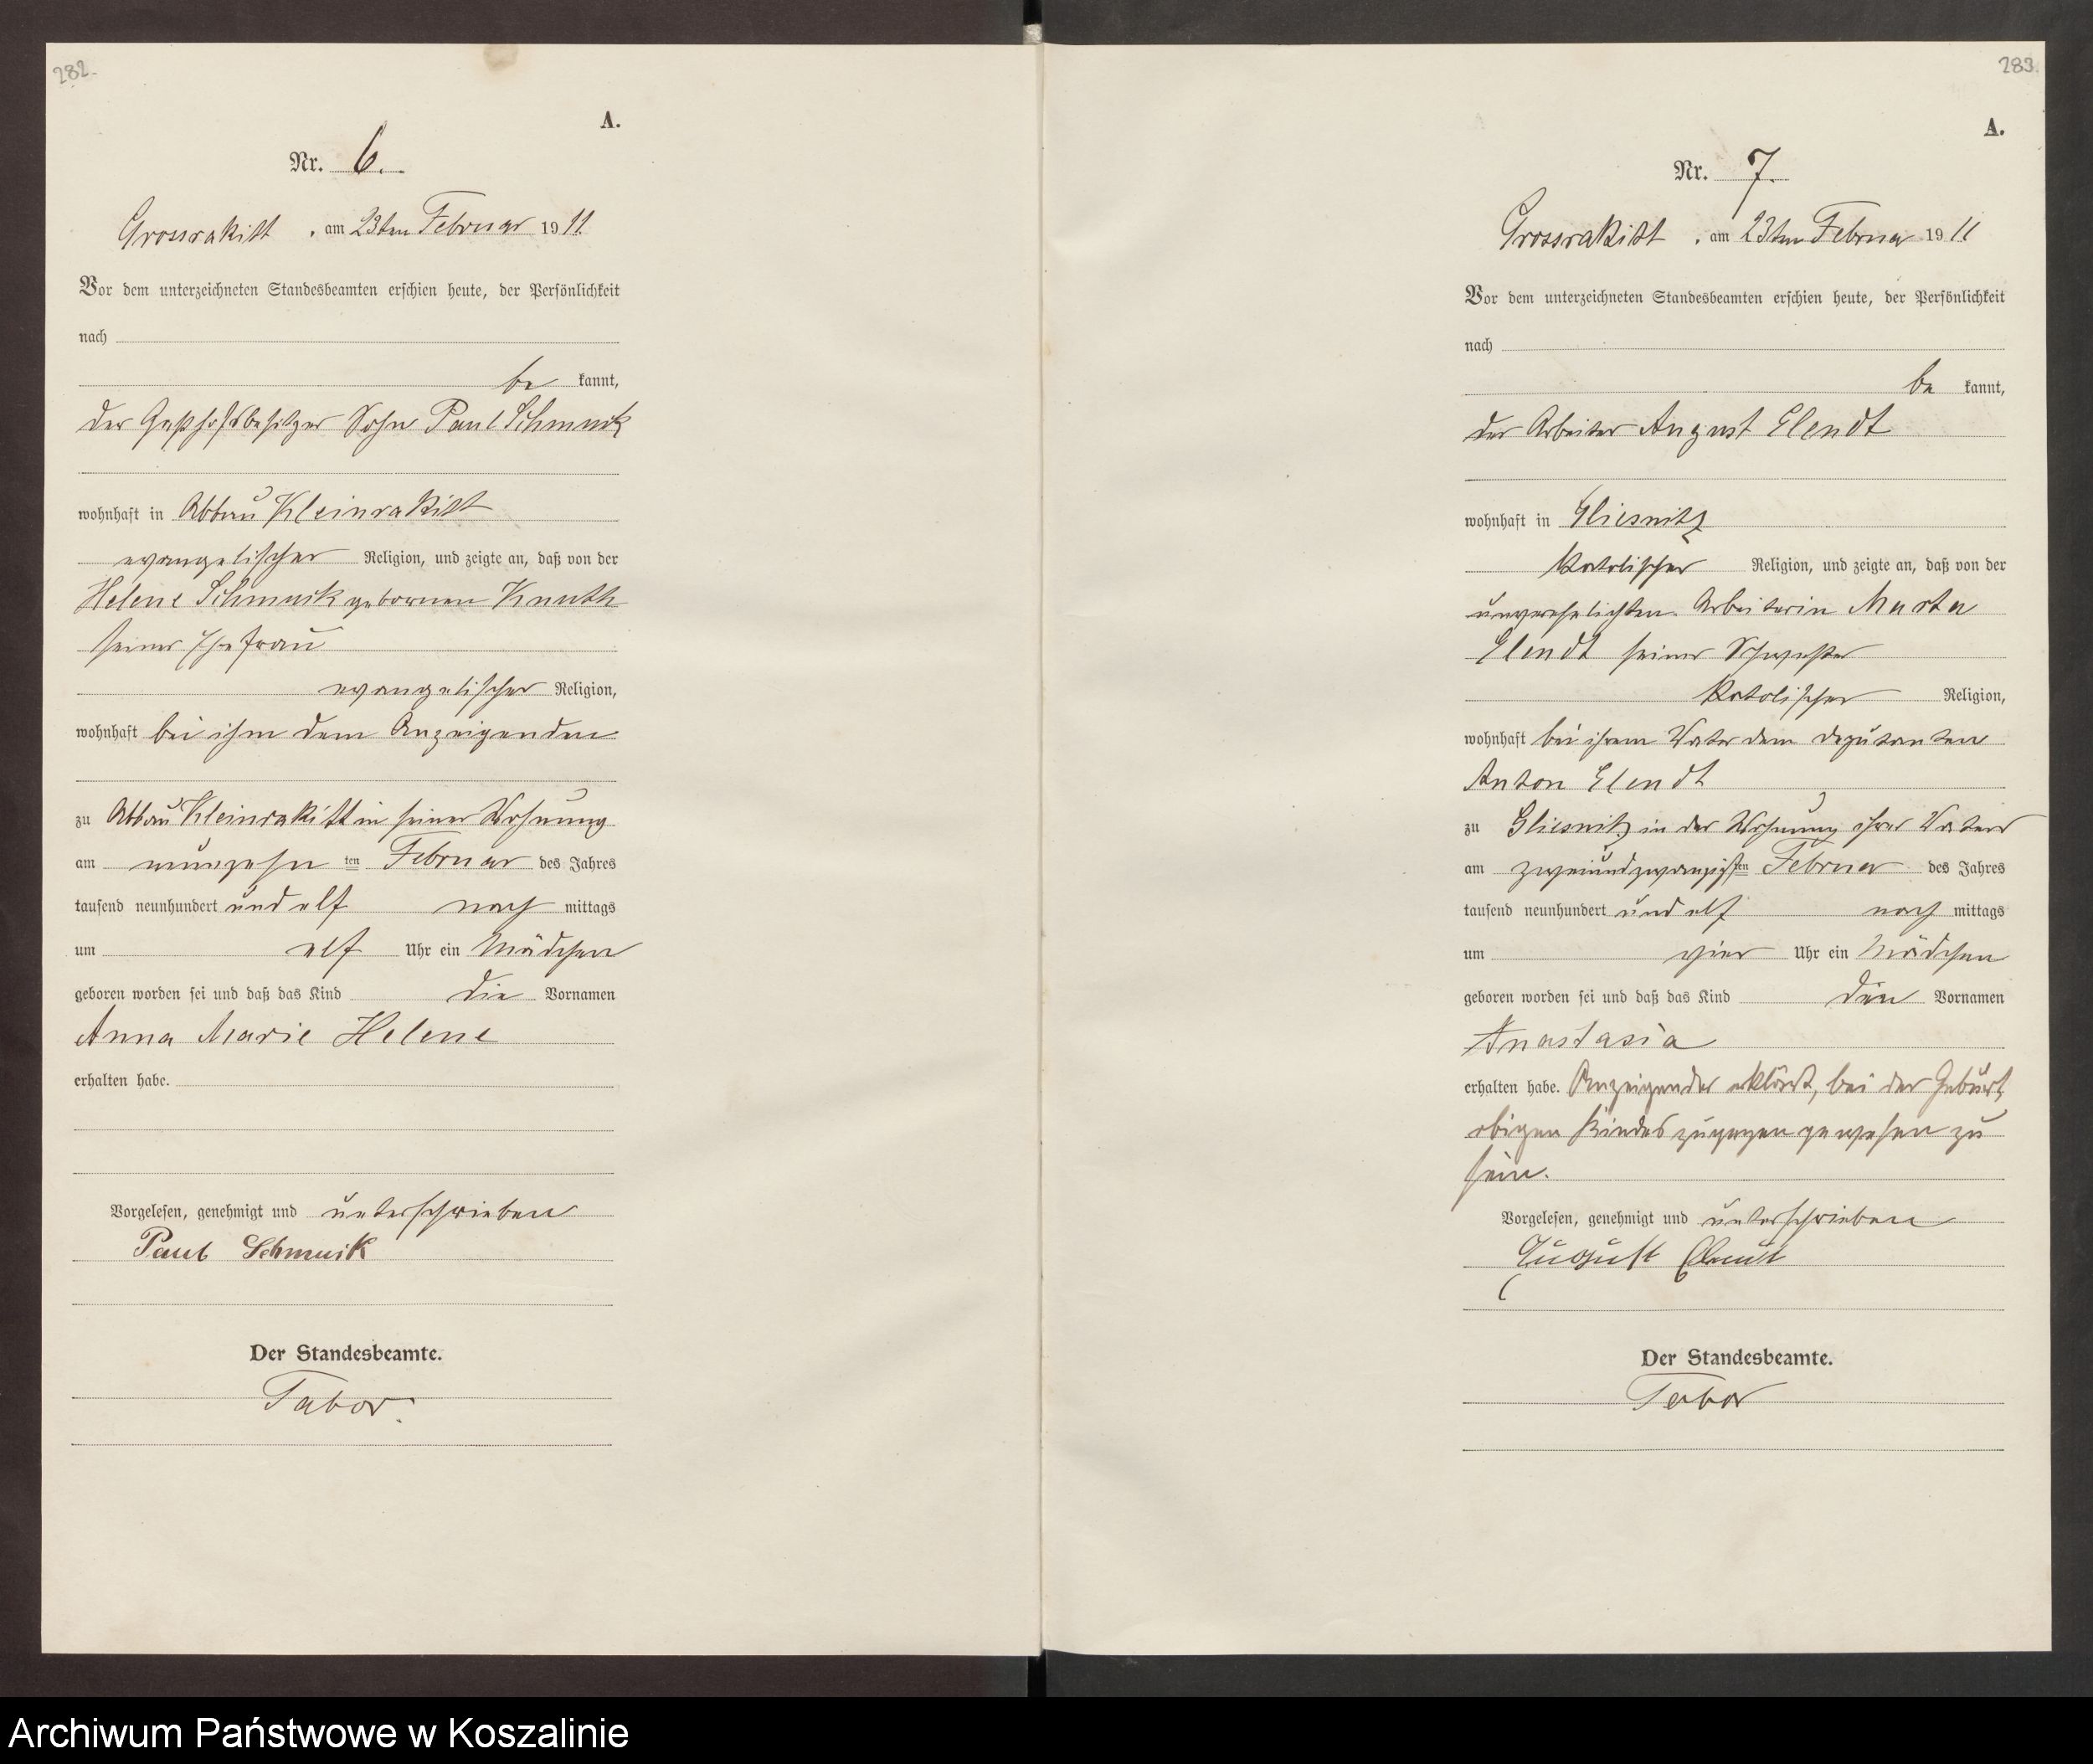 282.
A.
Nr. 6.
Grossrakitt, am 23ten Februar 1911.
Vor dem unterzeichneten Standesbeamten erschien heute, der Persönlichkeit
nach
be kannt,
der Gasthofsbesitzer Sohn Paul Schmuck
wohnhaft in Abbau Kleinrakitt
evangelischer Religion, und zeigte an, daß von der
Helene Schmuck geborenen Knuth
seiner Ehefrau
evangelischer Religion,
wohnhaft bei ihm dem Anzeigenden
zu Abbau Kleinrakitt in seiner Wohnung
am neunzehn ten Februar des Jahres
tausend neunhundert und elf nach mittags
um elf Uhr ein Mädchen
geboren worden sei und daß das Kind die Vornamen
Anna Marie Helene
erhalten habe.
Vorgelesen, genehmigt und unterschrieben
Paul Schmuck
Der Standesbeamte.
Tabor.
283.
A.
Nr. 7.
Grossrakitt, am 23ten Februar 1911
Vor dem unterzeichneten Standesbeamten erschien heute, der Persönlichkeit
nach
be kannt,
der Arbeiter August Elendt
wohnhaft in Gliesnitz
katolischer Religion, und zeigte an, daß von der
unverehelichten Arbeiterin Marta
Elendt seiner Schwester
katolischer Religion,
wohnhaft bei ihrem Vater dem Deputanten
Anton Elendt
zu Gliesnitz in der Wohnung ihres Vaters
am zweiundzwanzigsten Februar des Jahres
tausend neunhundert und elf nach mittags
um vier Uhr ein Mädchen
geboren worden sei und daß das Kind den Vornamen
Anastasia
erhalten habe. Anzeigender erklärt, bei der Geburt
obigen Kindes zugegen gewesen zu
sein.
Vorgelesen, genehmigt und unterschrieben
August
Der Standesbeamte.
Tabor
Archiwum Państwowe w Koszalinie